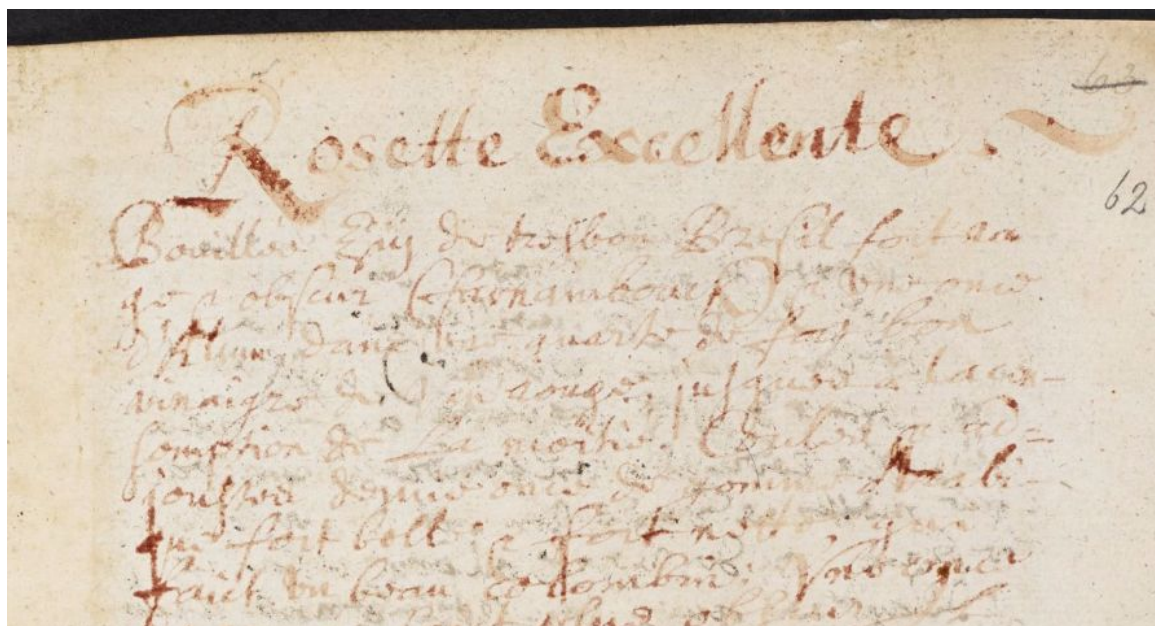 63
Rosette Excellente.
62
Bouilles de tresbon Bresil fort rou
ge & obscur & une once
d'Alum dans une quarte de fort bon
vinaigre de vin rouge, jusques a la con-
somption de La moitie. Coules & ad-
joustes demie once de gomme Arabi-
que fort belle & fort nette, qui
faict un beau colombin.
plus obscur